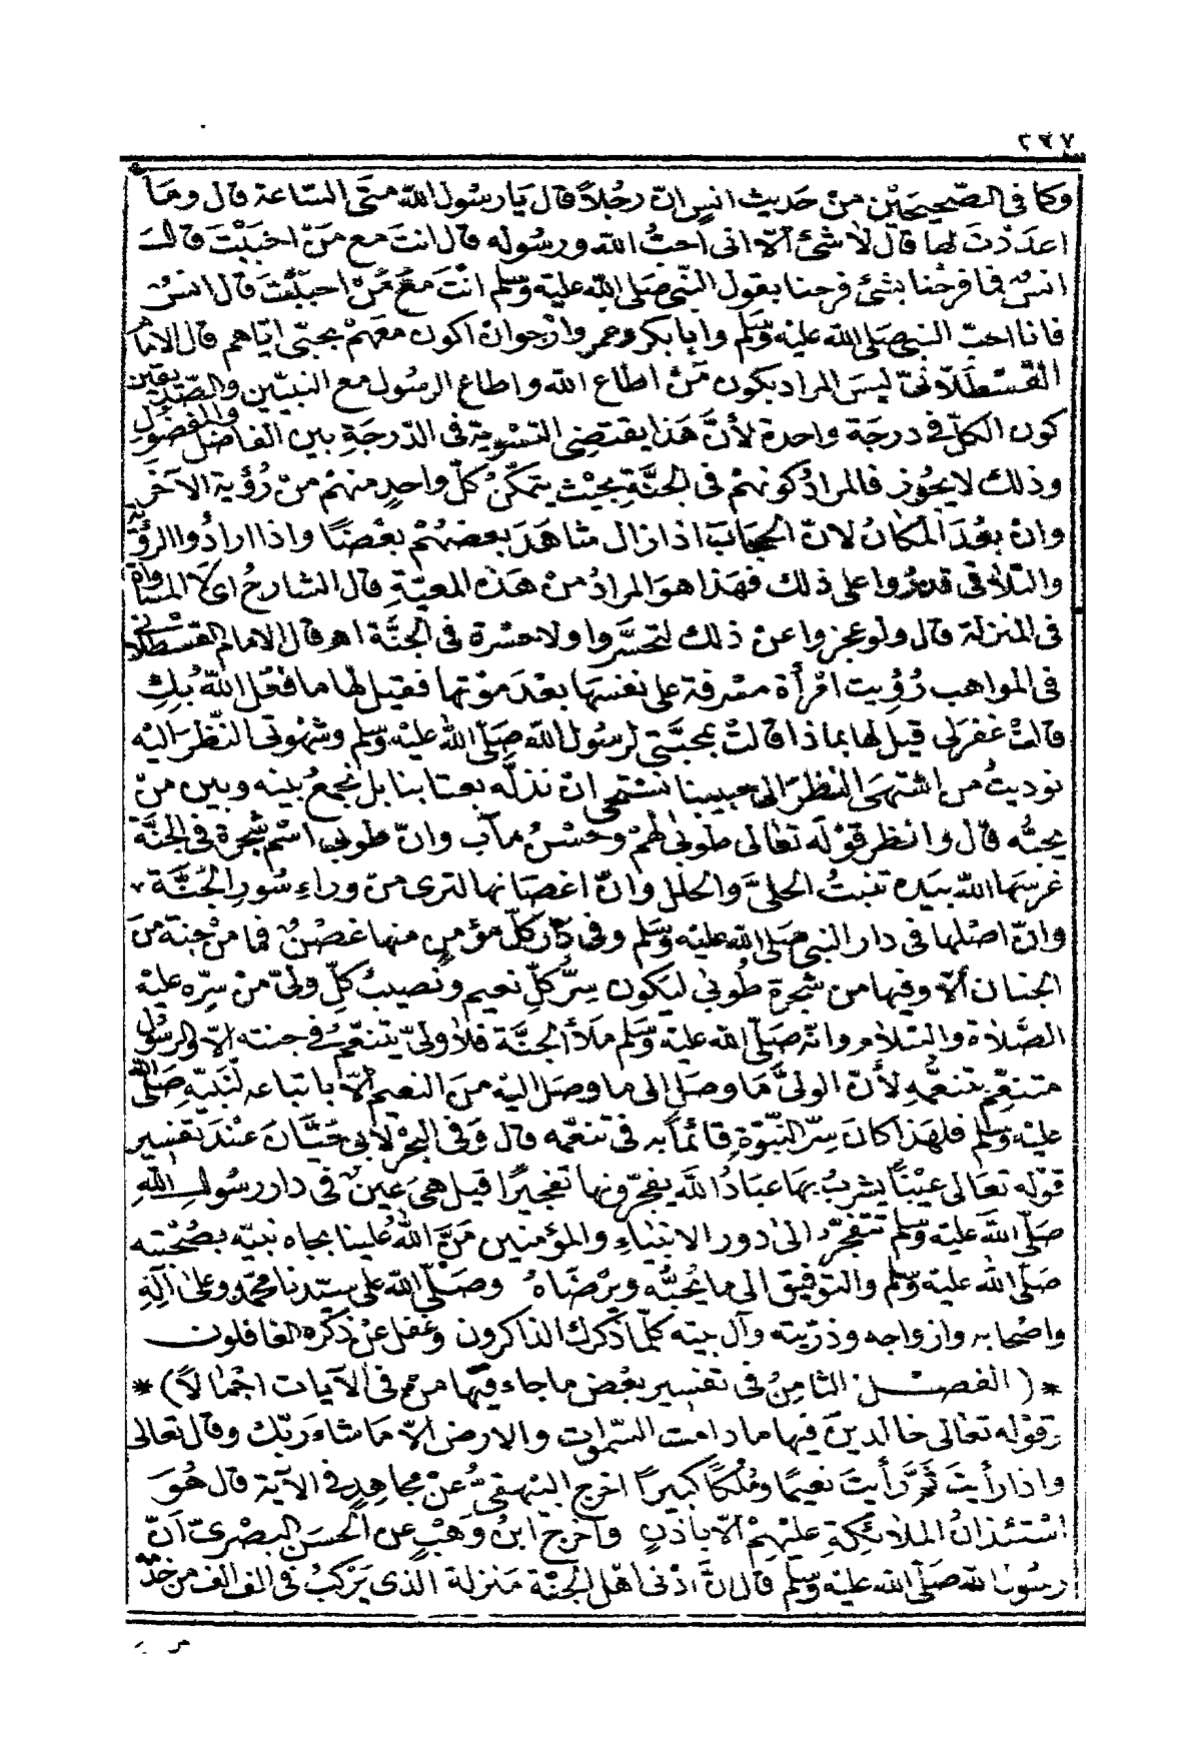 ٢٩٧
وكما فى الصّحيحين من حديث انس انّ رجلاً قال يا رسول الله متى السّاعة قال وما
اعددت لها قال لا شئ الّا انى احبّ الله ورسوله قال انت مع منّ احببت قالت
انس فما فرحنا بشئ فرحنا بقول النّبى صلى الله عليه وسلم انت مع من احببت قال انس
فانا احبّ النبى صلى الله عليه وسلم وابا بكر وعمر وارجوان اكون معهم بحبّى ايّاهم قال الامام
القسطلّانىّ ليس المراد بكون من اطاع الله واطاع الرسول مع النبيّين والصّدّيقين
كون الكلّ فى درجة واحدة لأنّ هذا يقتضى التسوية فى الدّرجة بين الفاضل والمفضول
وذلك لا يجوز فالمراد كونهم فى الجنّة بحيث يتمكّن كلّ واحد منهم من رؤية الآخر
وان بعد المكان لانّ الحجاب اذا زال شاهد بعضهم بعضًا واذا ارادوا الرؤية
والتلاقى قدروا على ذلك فهذا هو المراد من هذه المعيّة قال الشارح اى لا المساواة
فى المنزلة قال ولو عجزوا عن ذلك لتحسّروا ولا حسرة فى الجنّة اهـ قال الامام القسطلانى
فى المواهب رؤيت امرأة مسرفة على نفسها بعد موتها فقيل لها ما فعل الله بك
قالت غفرلى قيل لها بماذا قالت بمحبّتى لرسول الله صلّى الله عليه وسلم وشهوتى النّظر اليه
نوديت من اشتهى النظر الى حبيبنا نستحى ان نذلّه بعتابنا بل نجمع بينه وبين من
يحبّه قال وانظر قوله تعالى طوبى لهم وحسن مآب وانّ طوبى اسم شجرة فى الجنّة
غرسها الله بيده تنبت الحلىّ والحلل وانّ اغصانها لترى من وراء سور الجنّة
وانّ اصلها فى دار النبى صلى الله عليه وسلم وفى دار كلّ مؤمن منها غصن فما من جنة من
الجنان الّا وفيها من شجرة طوبى ليكون سرّ كلّ نعيم ونصيب كلّ ولىّ من سرّه عليه
الصّلاة والسّلام وانّه صلّى الله عليه وسلم ملأ الجنّة فلا ولىّ يتنعّم فى جنته الّا والرسول
متنعّم بتنعّمه لأنّ الولىّ ما وصل الى ما وصل اليه من النعيم الّا باتباعه لنبيّه صلّى الله
عليه وسلم فلهذا كان سرّ النبّوة قائماً به فى تنعّمه قال وفى البحر لأبى حيّان عند تفسير
قوله تعالى عينًا يشرب بها عباد الله يفجّرونها تفجيرًا قيل هى عين فى دار رسول الله
صلّى الله عليه وسلم تتفجّر الى دور الانبياء والمؤمنين منّ الله علينا بجاه نبيّه بصحبته
صلّى الله عليه وسلم والتوفيق الى ما يحبّه ويرضاه وصلّى الله على سيّدنا محمّد وعلى آله
واصحابه وازواجه وذرّيته وآل بيته كلّما ذكرك الذاكرون وغفل عن ذكره الغافلون
* ( الفصل الثامن فى تفسير بعض ما جاء فيها من عم فى الآيات اجمالاً ) *
قوله تعالى خالدين فيها ما دامت السّموات والارض الّا ما شاء ربّك وقال تعالى
واذا رأيت ثمّ رأيت نعيمًا وملكًا كبيرًا اخرج البيهقىّ عن مجاهد فى الآية قال هو
استئذان الملائكة عليهم الّا باذن واخرج ابن وهب عن الحسن البصرىّ انّ
رسول الله صلّى الله عليه وسلّم قال انّ ادنى اهل الجنّة منزلة الذى يركب فى الف الف من خدّ